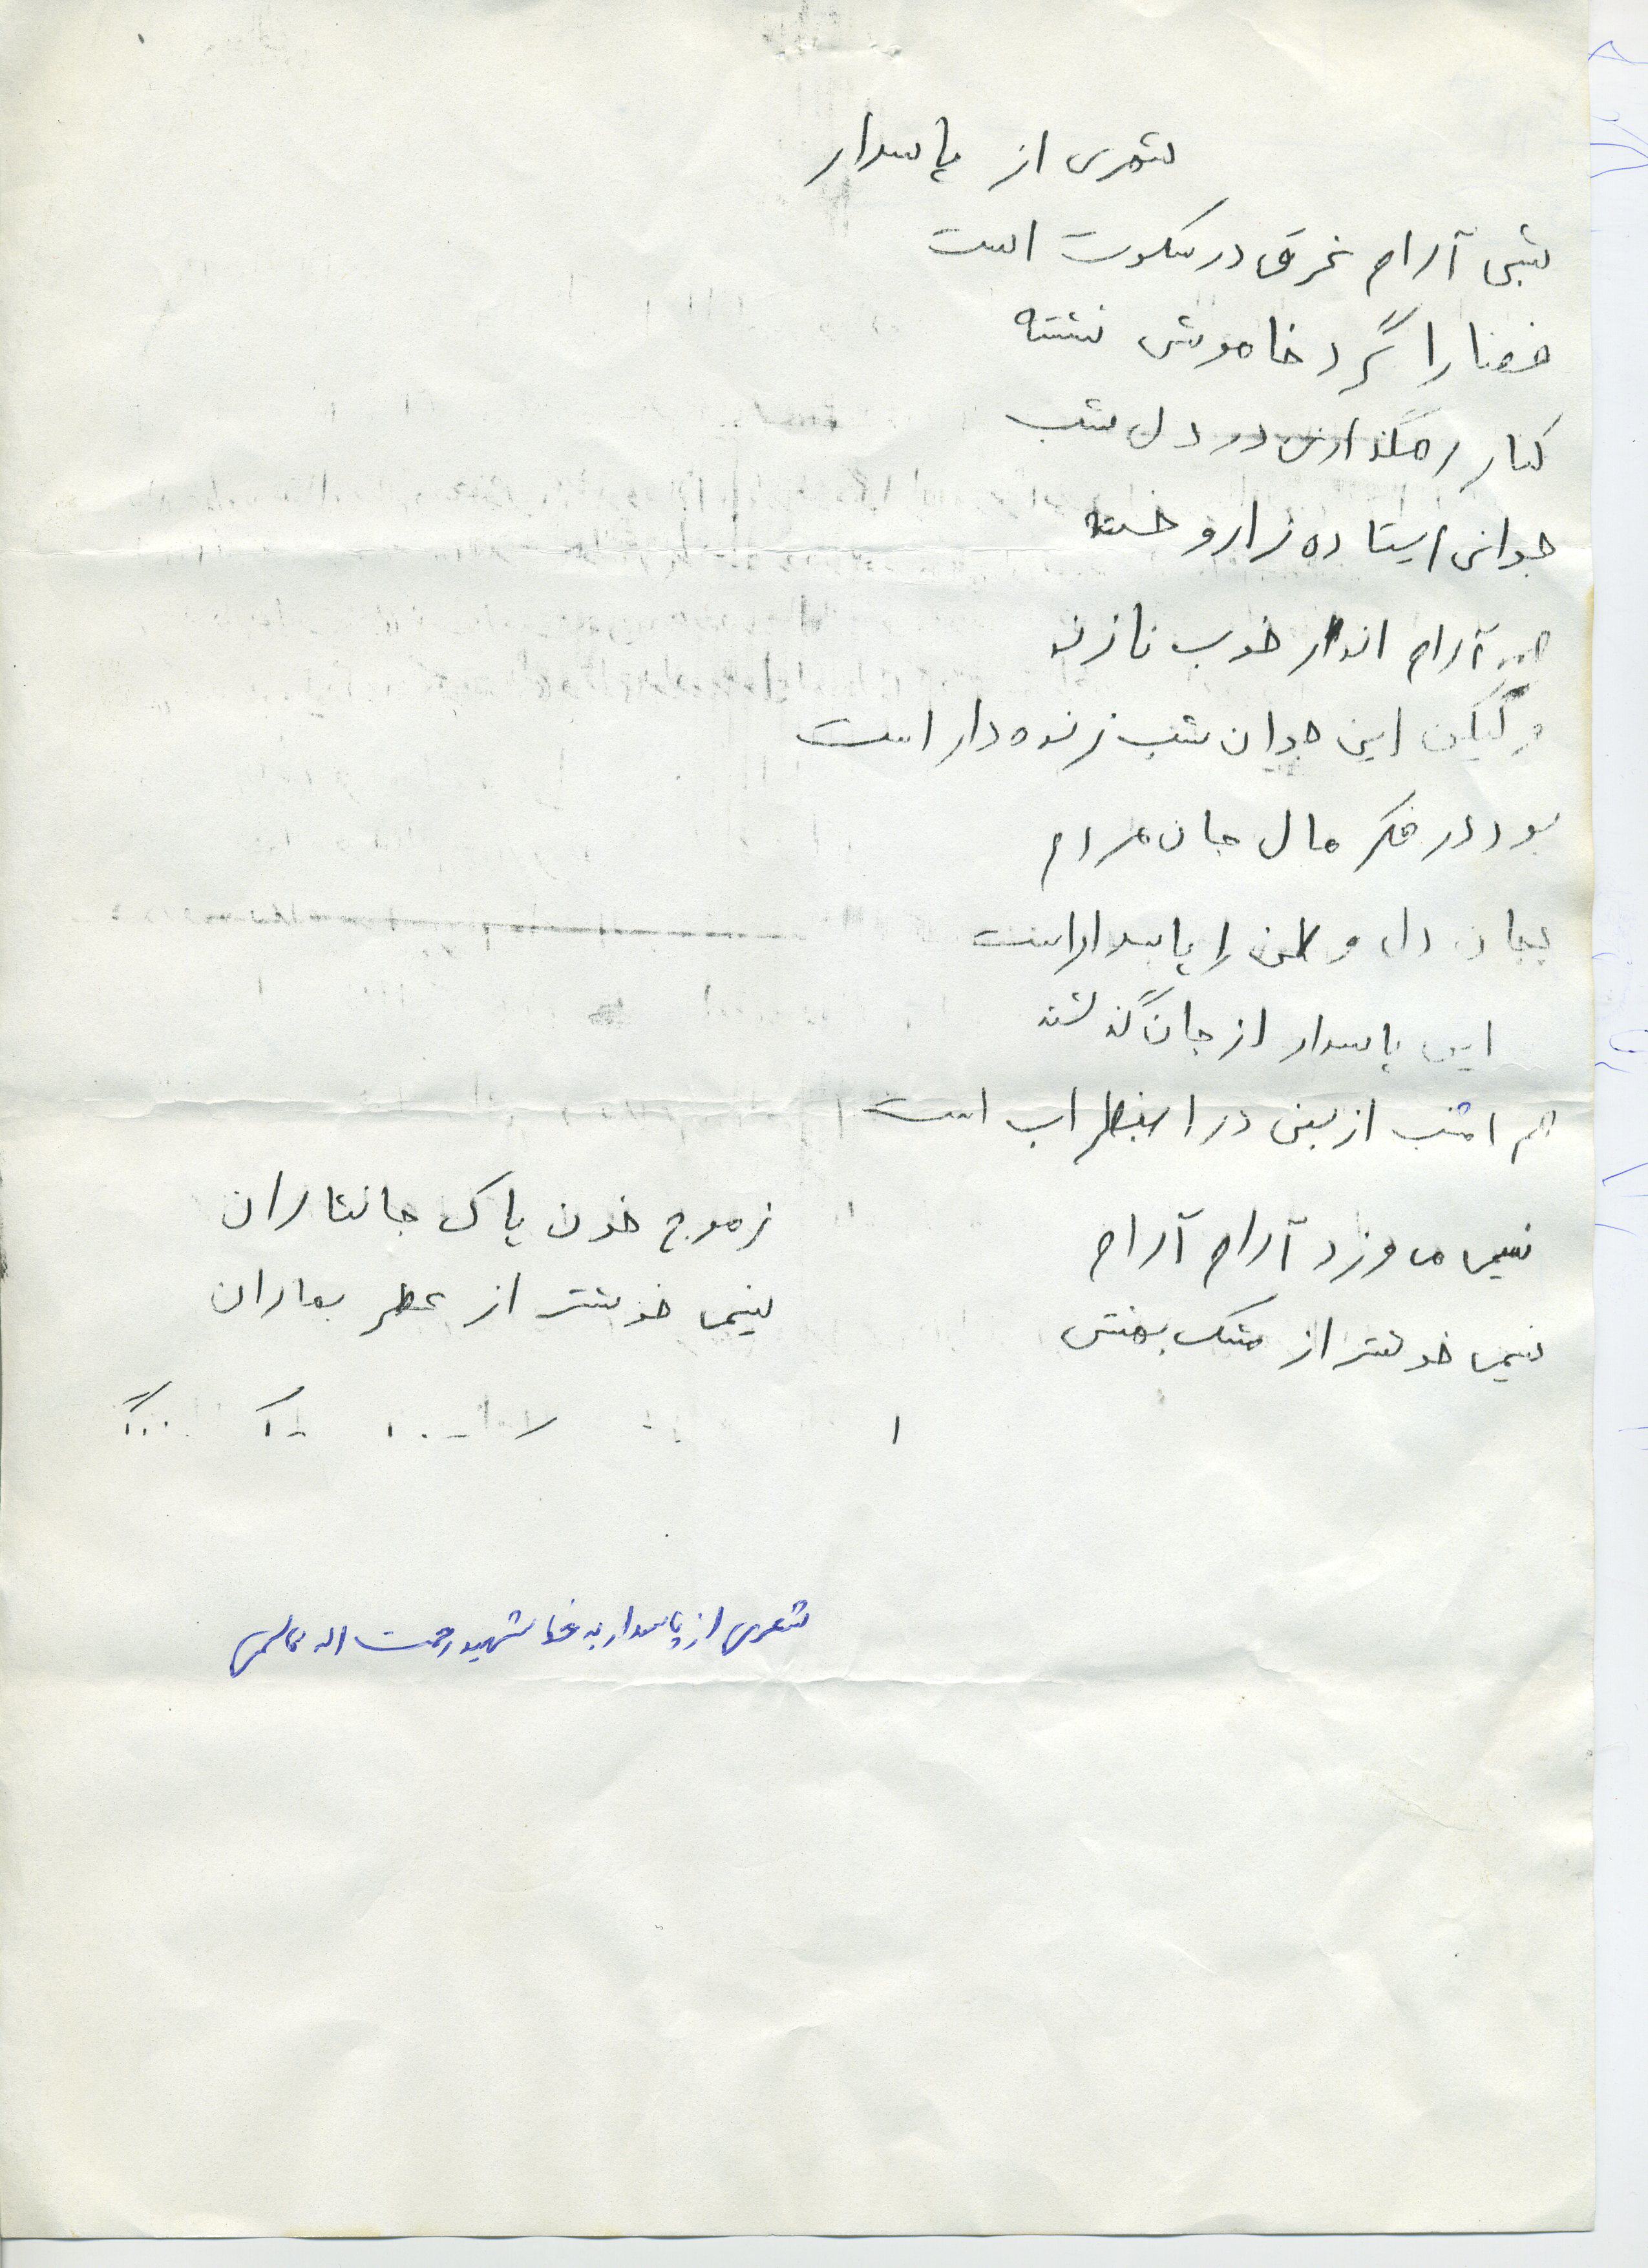 شعری از پاسدار
شبی آرام غرق در سکوت است
فضا را گرد خاموشی نشسته
کنار رهگذاری در دل شب
جوانی ایستاده زار و خسته
همه آرام اندر خوب نازند
ولیکن این جوان شب زنده دار است
بود در فکر مال جان مردم
بجان دل وطن را پاسدار است
این پاسدار از جان گذشته
هم امشب از بینی در اضطراب است
نسیمی می وزد آرام آرام
زموج خون پاک جانثاران
نسیمی خوشتر از مشک بهشتی
نسیمی خوشتر از عطر بهاران
شعری از پاسدار به خط شهید رحمت اله